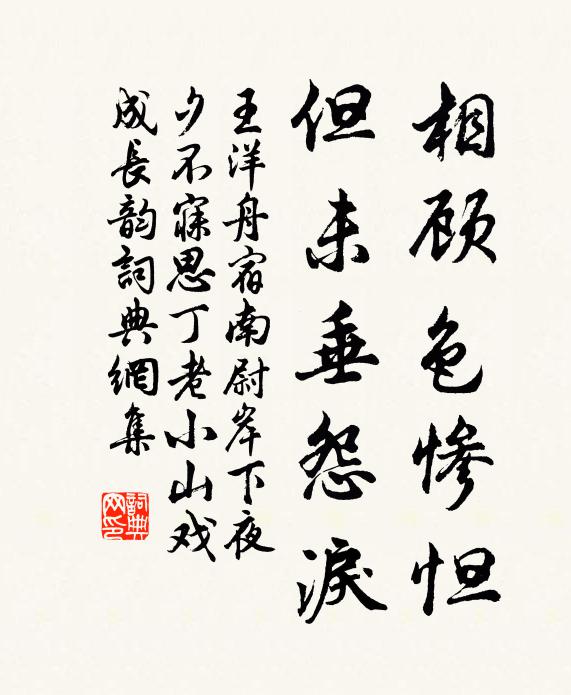 相顾色惨怛
但未垂怨淚
王洋舟宿南尉岸下夜
少不寐思丁老小山戏
成長韵詞典網集
詞典
网印